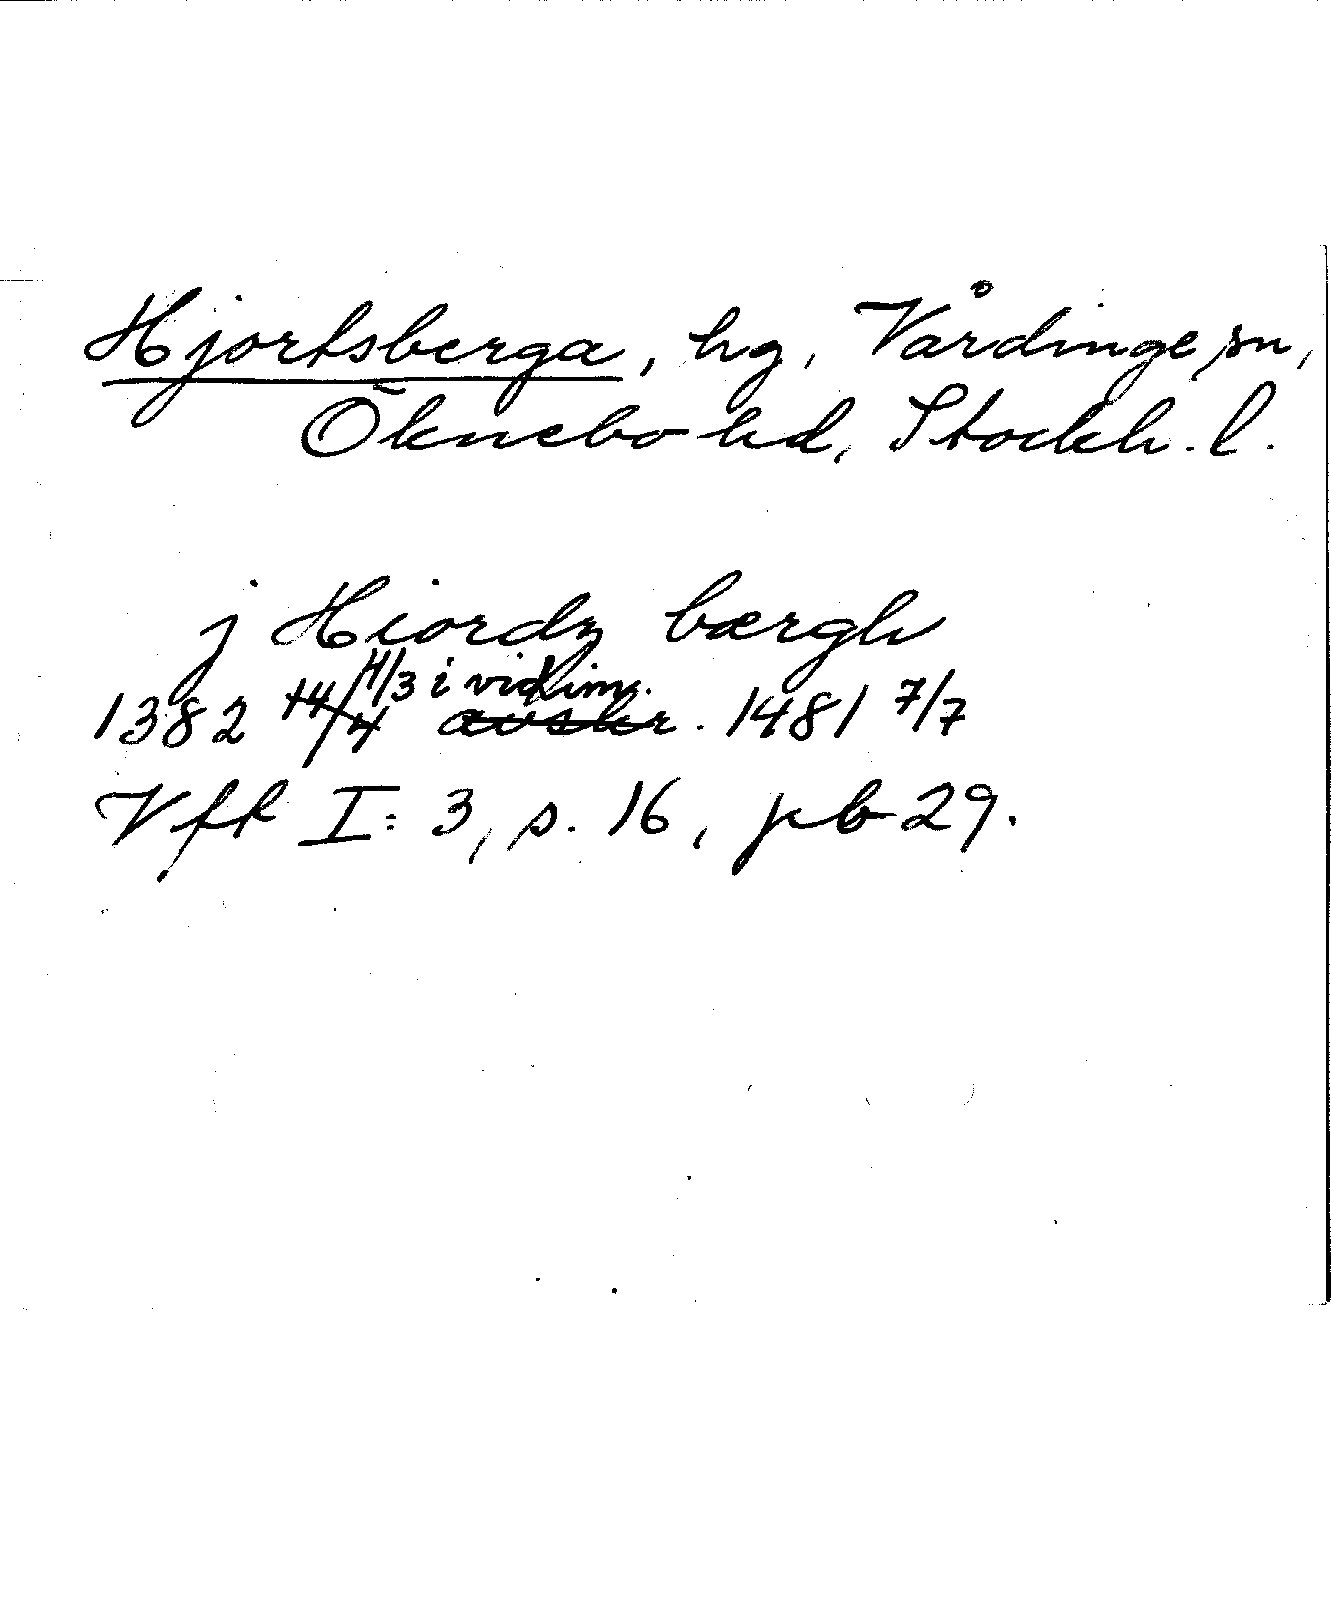 Hjortsberga, hg, Vårdinge sn,
Öknebo hd, Stockh. l.
j Hiordz bærgh
4/3 i vidim.
1382 14/4 avskr. 1481 7/7
Vfk I: 3, s. 16, pb 29.